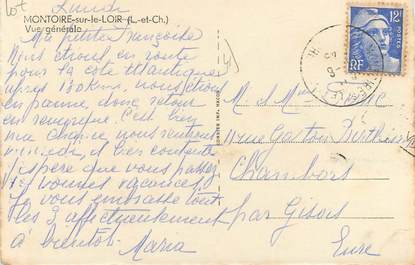 Lot
Lundi
MONTOIRE-sur-le-LOIR (L.-et-Ch.)
Vue générale
Ma petite Françoise
Nous étions en route
pour la côte Atlantique
après 130 kms, nous étions
en panne donc retour
en remorque. C'est bien
ma chance nous rentrons
j'espère que vous passez
de bonnes vacances,
Je vous embrasse tous
les 3 affectueusement
à bientôt. Maria
12F
POSTES
RF
M et Mme
11 rue Gaston
Chambors
par Gisors
Eure